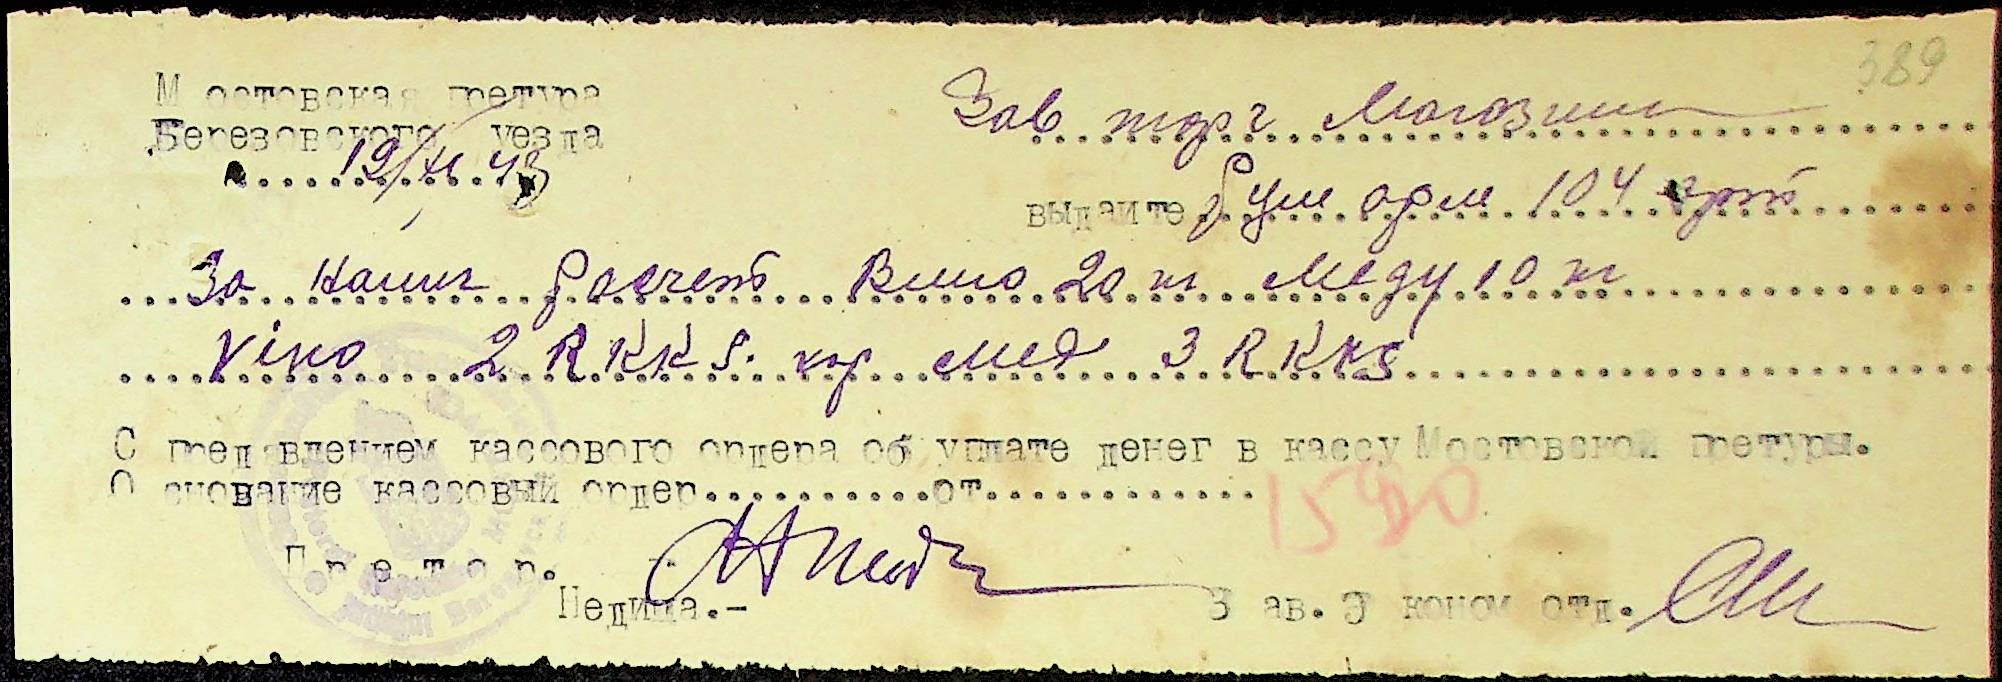 389
Мостовская претура
Березовского уезда
19/XI 43
Зав торг Магозин
выдайте Рум арм 104
За наши расчет Вино 20 кг меду 10 кг
Vino 2 RKKS. кг мед 3 RKKS
С пред явлением кассового ордера об уплате денег в кассу Мостовской претуры.
О снование кассовый ордер...........от.............
1580
П р е т о р.
Недица.-
З ав. Э коном отд.